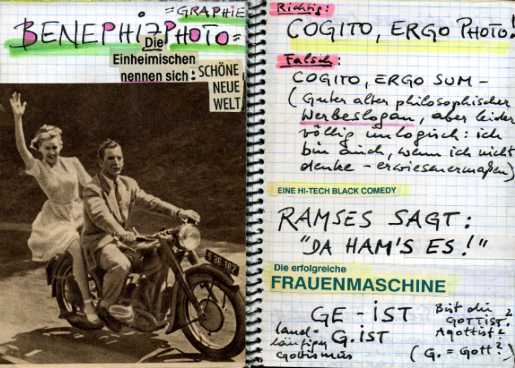 =GRAPHIE
BENEPHIZPHOTO=
Die
Einheimischen
nennen sich:
SCHÖNE
NEUE
WELT
Richtig:
COGITO, ERGO PHOTO!
Falsch:
COGITO, ERGO SUM -
(Guter alter philosophischer
Werbeslogan, aber leider
völlig unlogisch: ich
bin auch, wenn ich nicht
denke - erwiesenermaßen)
EINE HI-TECH BLACK COMEDY
RAMSES SAGT:
"DA HAM'S ES!"
Die erfolgreiche
FRAUENMASCHINE
GE-IST
land-
läufiger
G.IST
Bist du
GOTTIST?
Agottist?
(G. = Gott?)